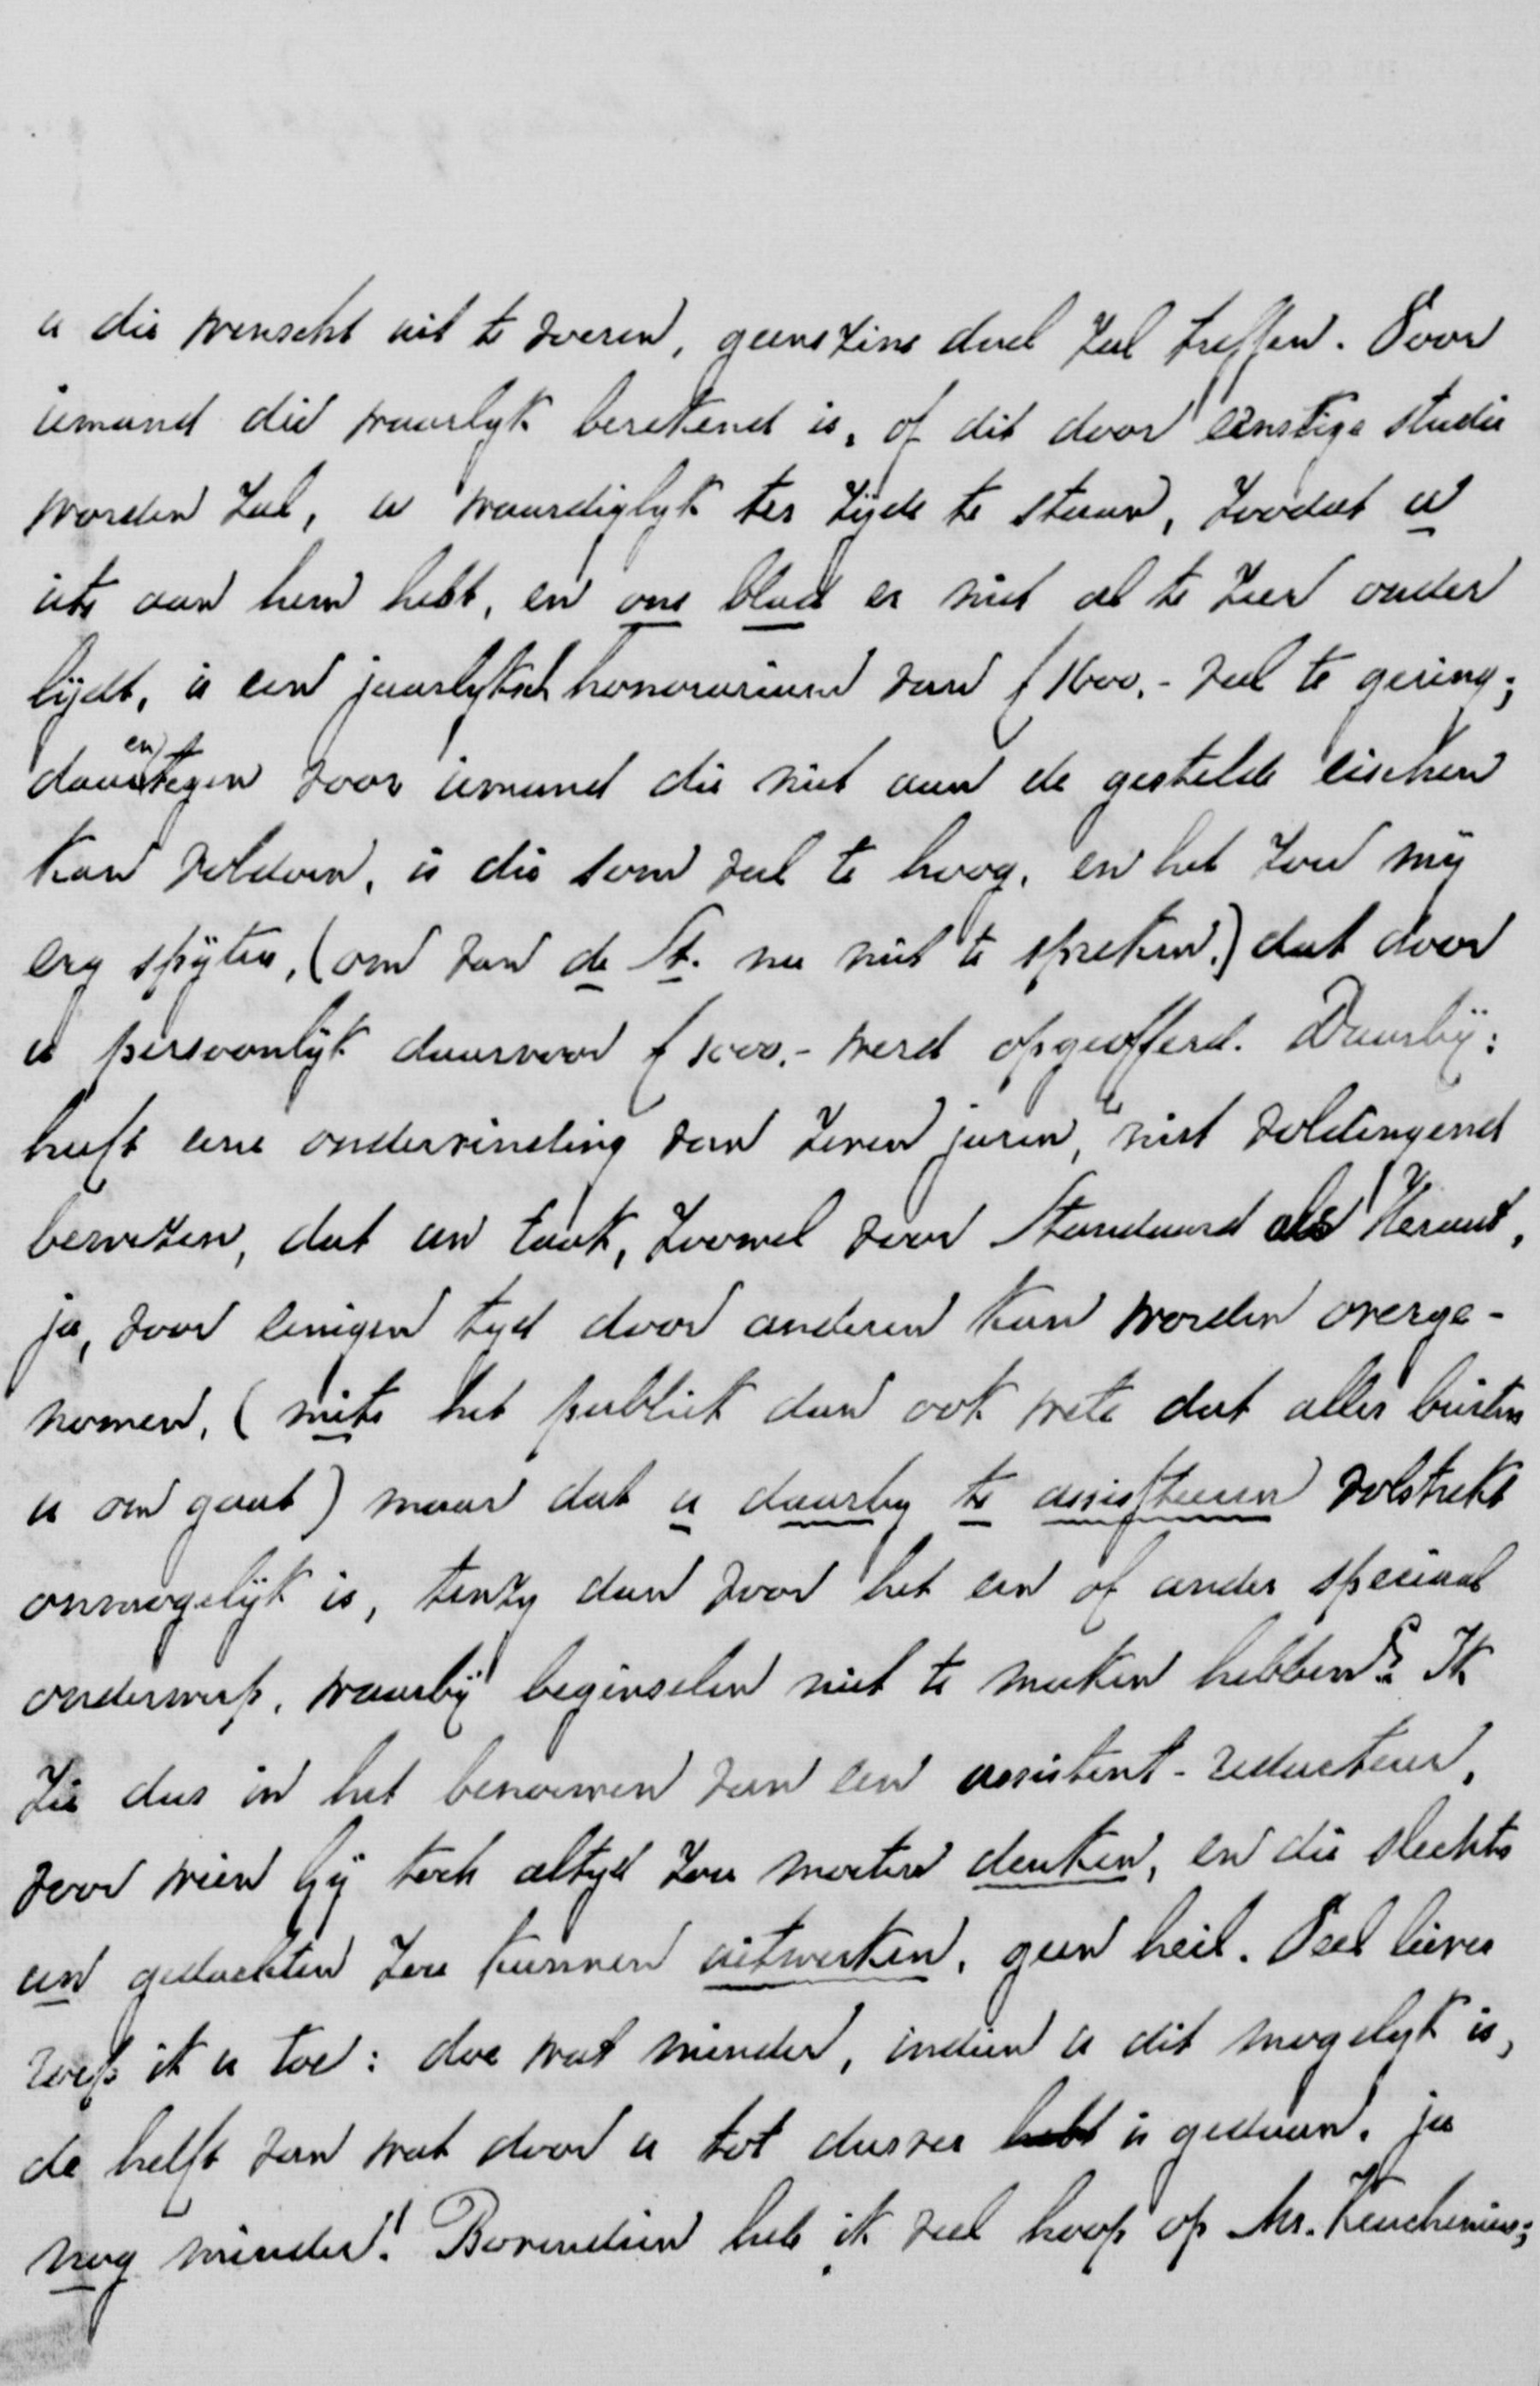 u die wenscht uit te voeren, geenszins doel zal treffen. Voor
iemand die waarlyk berekend is, of dit door ernstige studie
worden zal, u waardiglyk ter zijde te staan, zoodat u
iets aan hem hebt, en ons blad er niet al te zeer onder
lijdt, is een jaarlyksch honorarium van f 1600.- veel te gering;
daarentegen voor iemand die niet aan de gestelde eischen
kan voldoen, is die som veel te hoog, en het zou mij
erg spijten, (om van de St. nu niet te spreken,) dat door
u persoonlijk daarvoor f 1000.- werd opgeofferd. Daarbij:
heeft eene ondervinding van zeven jaren, niet voldingend
bewezen, dat uw taak, zoowel voor Standaard als Heraut,
ja, voor eenigen tyd door anderen kan worden overge-
nomen, (mits het publiek dan ook wete dat alles buiten
u om gaat) maar dat u daarby te assisteeren volstrekt
onmogelijk is, tenzy dan voor het een of ander speciaal
onderwerp, waarbij beginselen niet te maken hebben? Ik
zie dus in het benoemen van een assistent-redacteur,
voor wien Gij toch altyd zou moeten denken, en die slechts
uw gedachten zou kunnen uitwerken, geen heil. Veel liever
roep ik u toe: doe wat minder, indien u dit mogelyk is,
de helft van wat door u tot dusver hebt is gedaan, ja
nog minder! Bovendien heb ik veel hoop op Mr. Keuchenius;